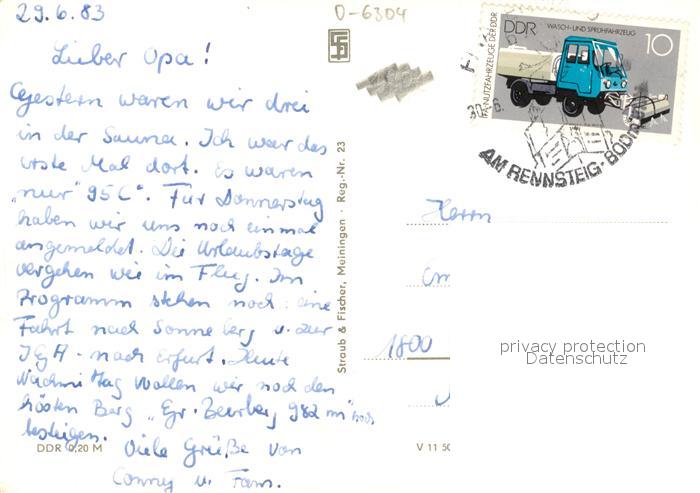 29.6.83
D-6304
Lieber Opa!
Gestern waren wir drei
in der Sauna. Ich war das
erste Mal dort. Es waren
"nur" 95 C°. Für Donnerstag
haben wir uns noch einmal
angemeldet. Die Urlaubstage
vergehen wie im Flug. Im
Programm stehen noch: eine
Fahrt nach Sonneberg u. zur
IGA - nach Erfurt. Heute
Nachmittag wollen wir noch den
hösten Berg "Gr. Beerberg 982 m" noch
besteigen.
Viele Grüße von
Conny u. Fam.
DDR 0,20 M
V 11 50
Straub & Fischer, Meiningen · Reg.-Nr. 23
IFA-NUTZFAHRZEUGE DER DDR
DDR
WASCH- UND SPRÜHFAHRZEUG
10
AM RENNSTEIG
Herrn
1800
privacy protection
Datenschutz